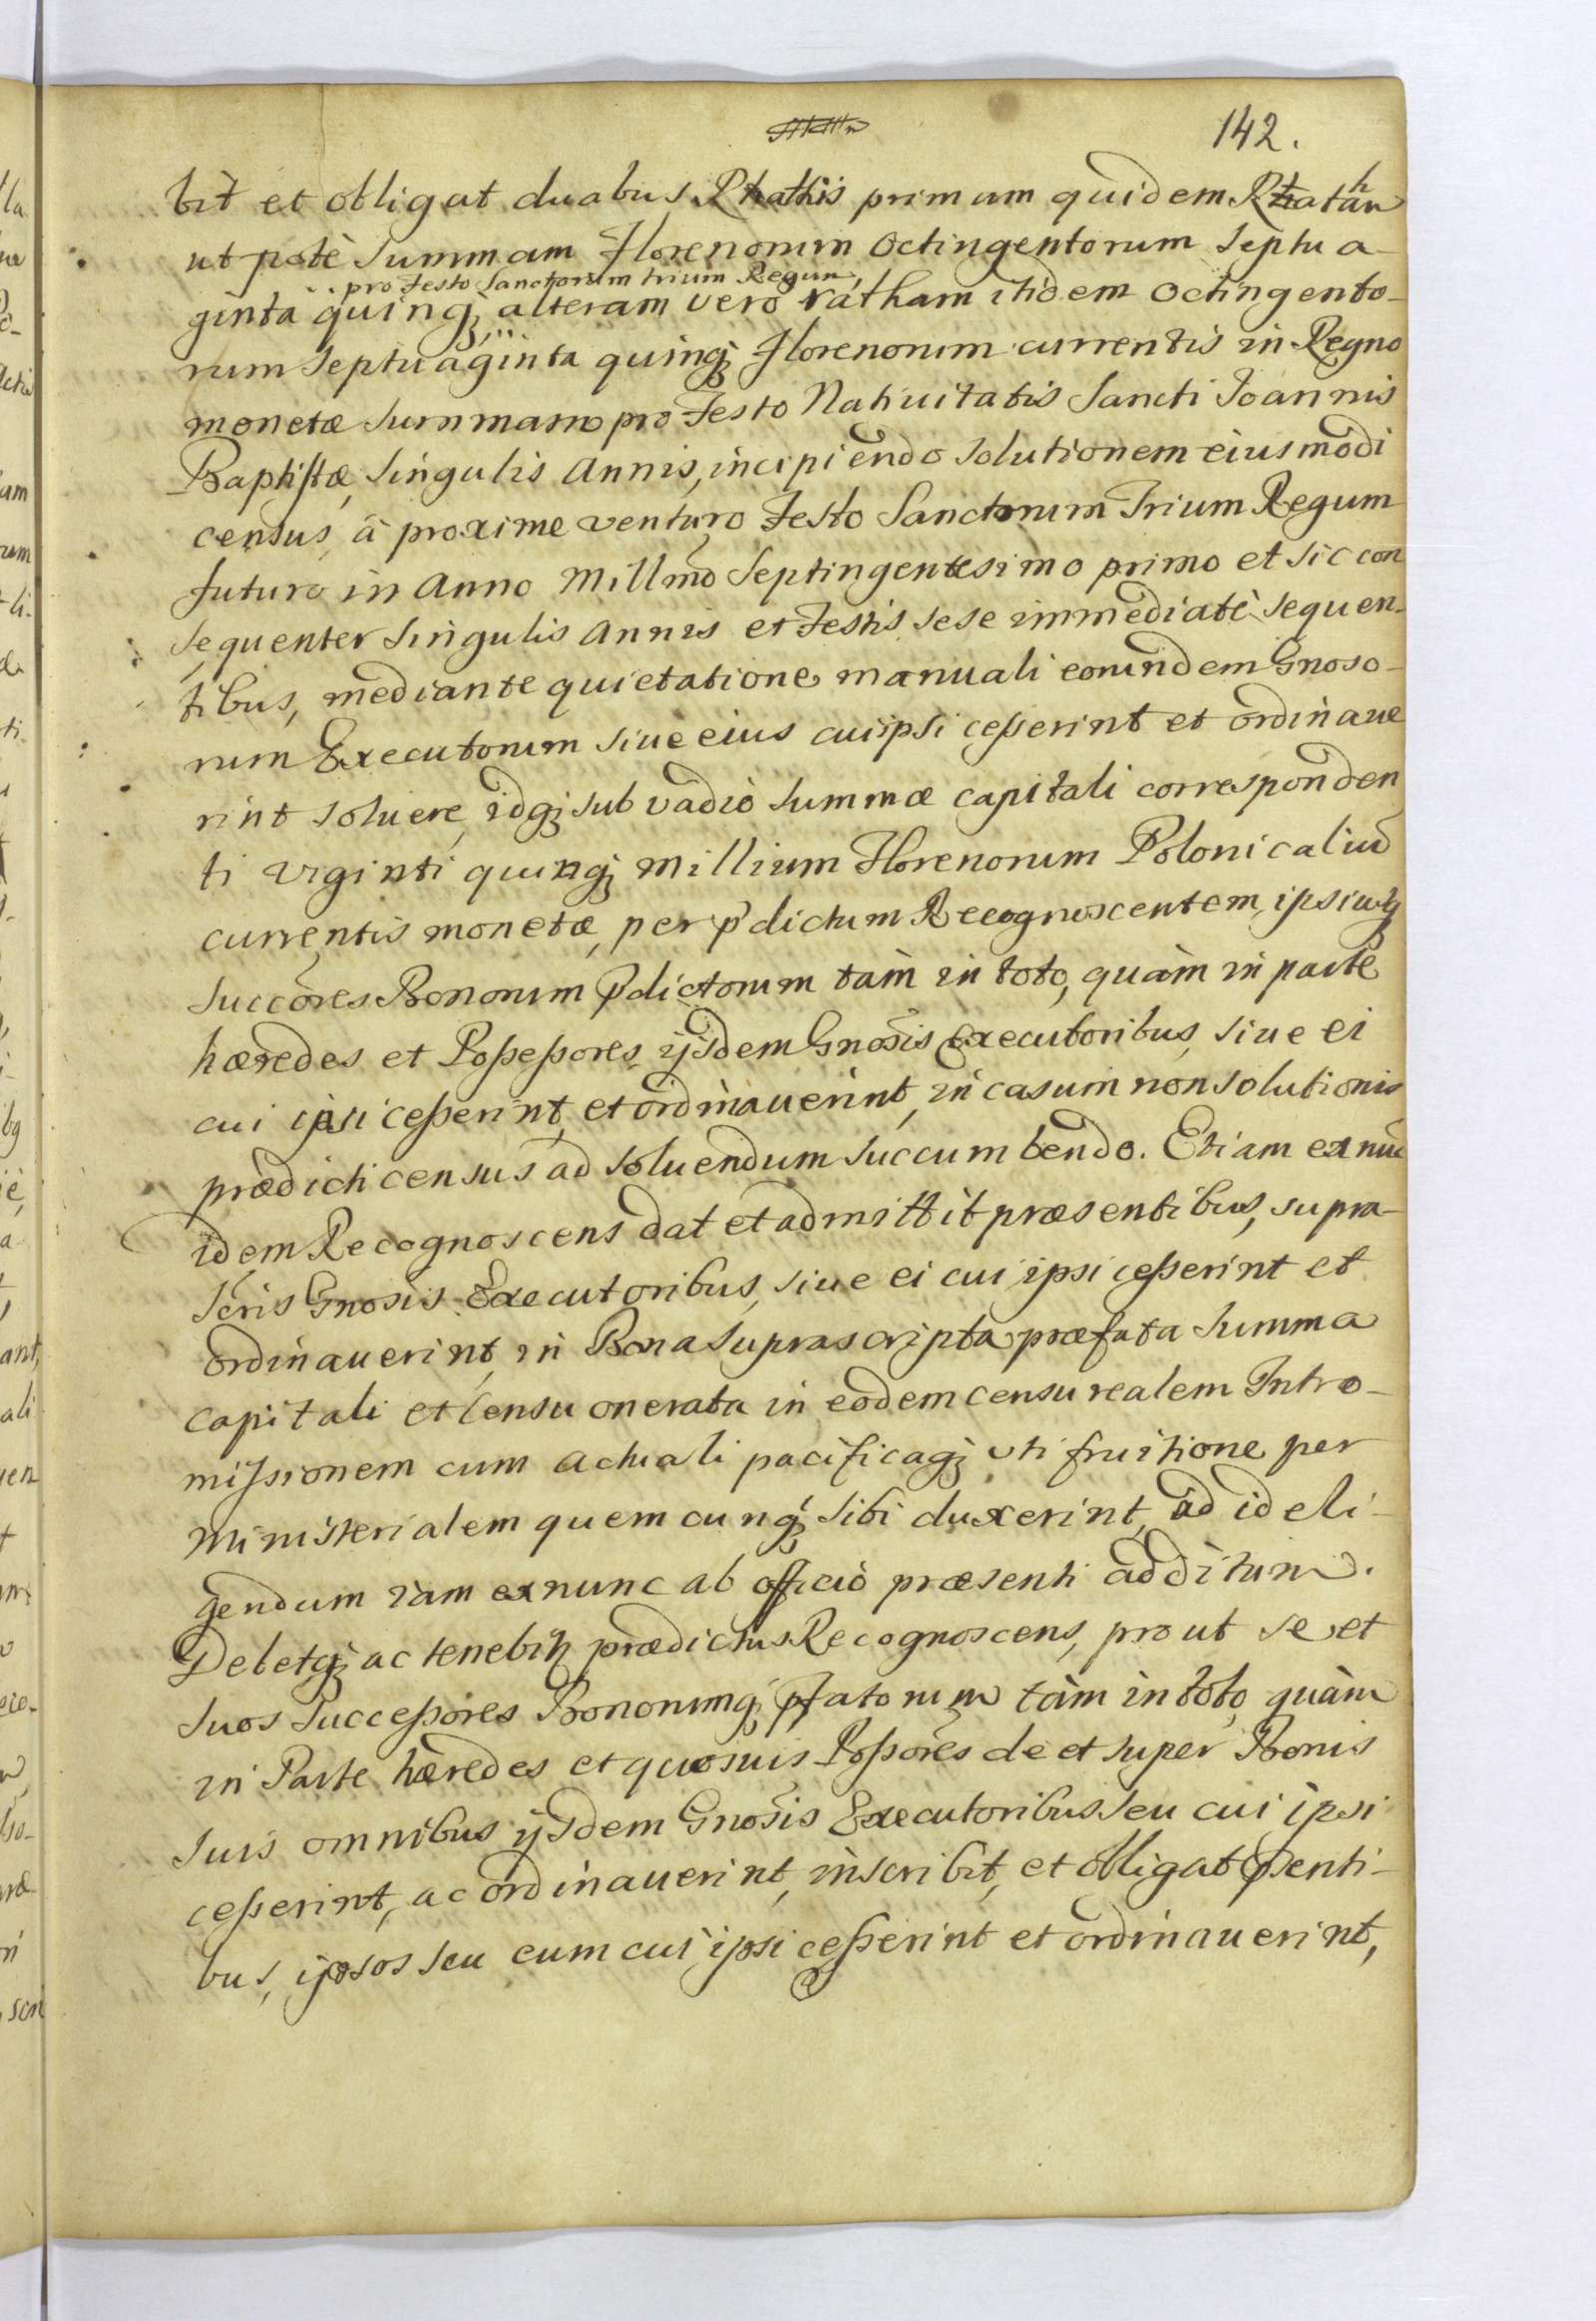 142.
bit et obligat duabus Rhathis primam quidem Rhatham
ut potè summam Florenorum Octingentorum Septua-
pro Festo Sanctorum trium Regum,
ginta quinq; alteram vero ratham itidem Octingento-
rum Septuaginta quinq; Florenorum currentis in Regno
monetæ summam pro Festo Nativitatis Sancti Joannis
Baptistæ, singulis Annis, incipiendo solutionem eiusmodi
census, â proxime venturo Festo Sanctorum Trium Regum
futuro in Anno Millmo Septingentesimo primo et sic con
sequenter singulis Annis et Festis sese immediatè sequen-
tibus, mediante quietatione manuali eorundem Gnoso-
rum Executorum siue eius cui ipsi cesserint et ordinaue
rint soluere, idq; sub vadio summæ capitali corresponden
ti viginti quinq; millium Florenorum Polonicaliũ
currentis monetæ, per p̃dictum Recognoscentem, ipsiusq;
succõres Bonorum p̃dictorum tàm in toto, quàm in parte
hæredes et Possessores ijsdem Gnosis Executoribus, siue ei
cui ipsi cesserint, et ordinauerint, in casum non solutionis
prædicti census ad soluendum succumbendo. Etiam ex nũc
idem Recognoscens dat et admittit præsentibus, supra-
scris Gnosis Executoribus, siue ei cui ipsi cesserint et
ordinauerint, in Bona suprascripta præfata summa
capitali et censu onerata in eodem censu realem Intro-
missionem cum actuali pacificaq; vti fruitione per
Ministerialem quemcunq; sibi duxerint, ad id eli-
gendum iam ex nunc ab officio præsenti additum.
Debetq; ac tenebitr prædictus Recognoscens, prout se et
suos successores Bonorumq; pfatorum tàm in toto, quàm
in Parte hæredes et quosuis Possõres de et super Bonis
suis omnibus ijsdem Gnosis Executoribus seu cui ipsi
cesserint, ac ordinauerint, inscribit, et obligat p̃senti-
bus, ipsos seu eum cui ipsi cesserint et ordinauerint,